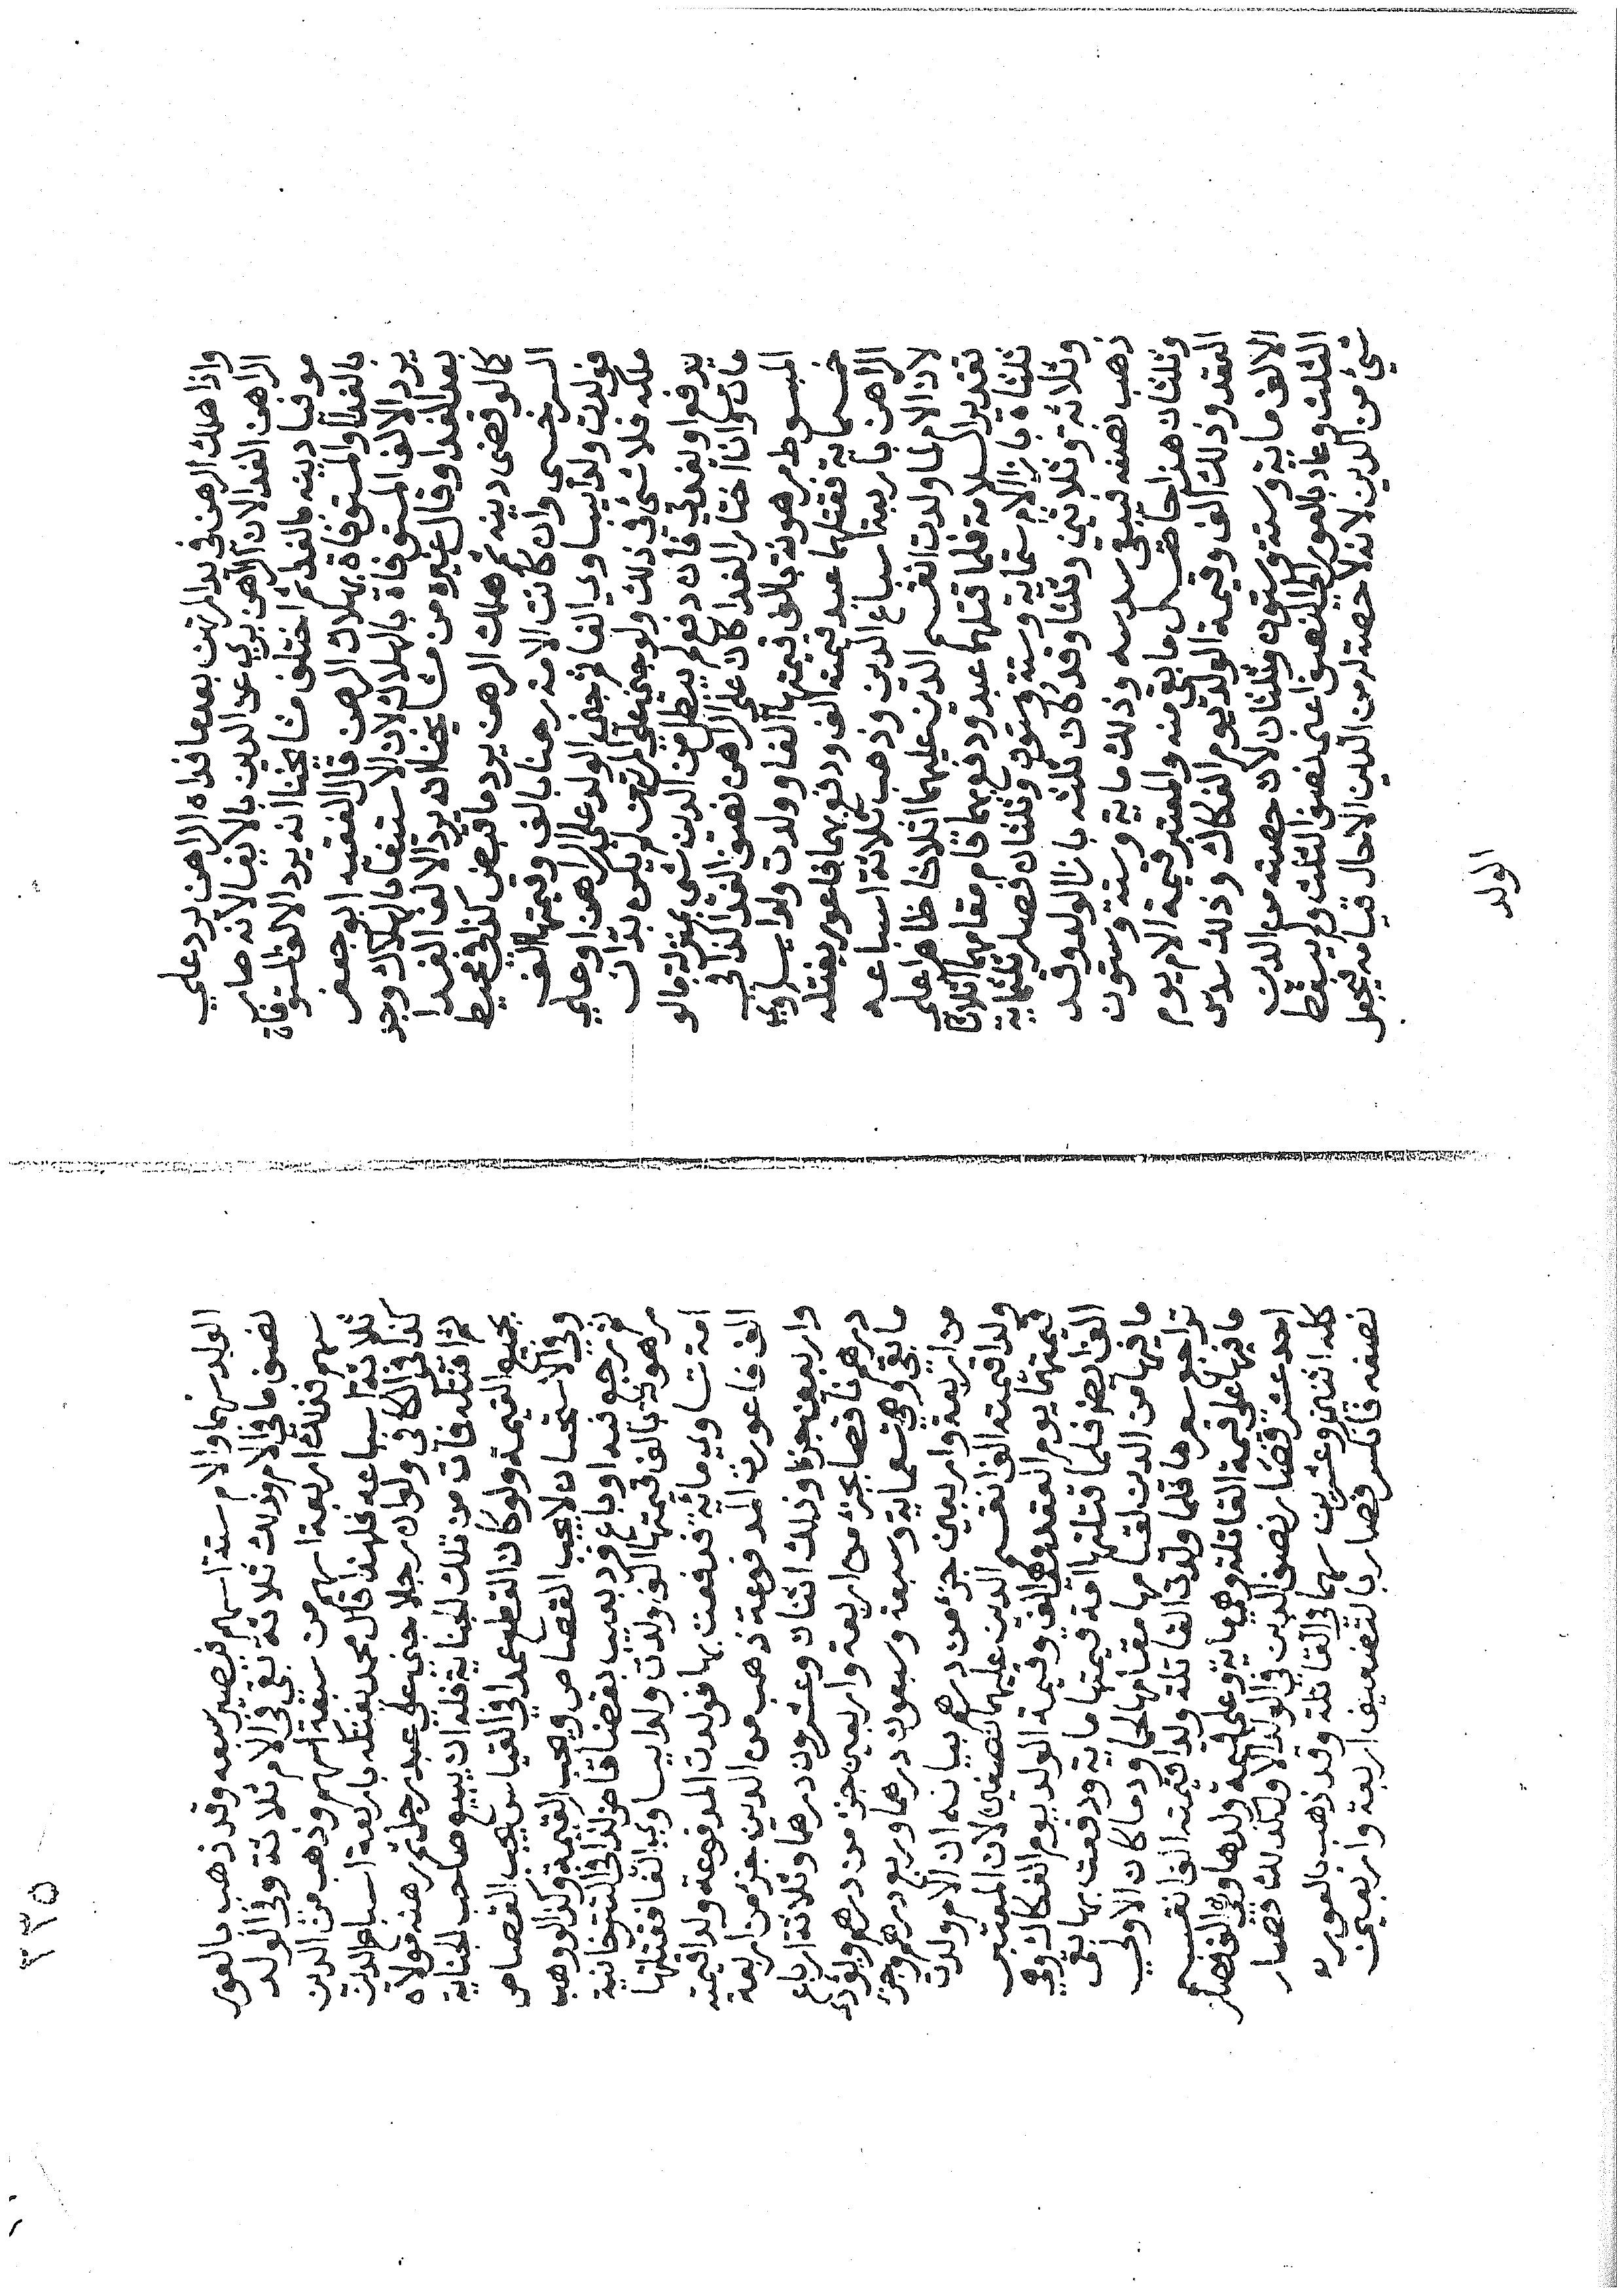 واذا هلك الرهن في يد المرتهن بعدما فداه الراهن يرد علي
الراهن الفداء لان الراهن بري عن الدين بالايفا لانه صار
موفيا دينه بالفداء ثم اختلف مشايخنا انه يرد الالف المستوفاة
بالفداء او المستوفاة بهلاك الرهن قال الفقيه ابو جعفر
يرد الالف المستوفاة بالهلاك لان الاستيفا بالهلاك وجد
بعد الفداء وقال غيره من مشايخنا انه يرد الالف الفداء
كما لو قضى دينه ثم هلك الرهن يرد ما قبض كذا في محيط
السرخسي وان كانت الامة رهنا بالف وقيمتها الف
فولدت ولدا يساوي الفا ثم جنى الولد على الراهن او علي
ملكه فلا شئ في ذلك ولو جنى على المرتهن لم يكن بد من ان
يدفعوا او يفدي فان دفع لم يبطل من الدين شي بمنزلة ما لو
مات وان اختار الفداء كان على الراهن نصف الفداء كذا في
المبسوط مرهونة بالف قيمتها الف وولدت ولدا يساوي
خمسماية فقتلهما عبد قيمته الف ودفع بهما فاعور يفتكه
الراهن باربعة اسباع الدين وذهب ثلاثة اسباعه
لان الام لما ولدت انقسم الدين عليهما اثلاثا ظاهرا علي
تقدير السلامة فلما قتلهما عبد ودفع بهما قام مقامهما اثلاثا
ثلثاه بازا الام ستماية وستة وستون وثلثان فصار ثلثماية
وثلاثة وثلاثين وثلثا وقد كان ثلثه بازا الولد وقد
ذهب نصفه فيبقى سدسه وذلك ماية وستة وستون
وثلثان هذا حاصل ما بقى منه والمعتبر قيمة الام يوم
العقد وذلك الف وقيمة الولد يوم الفكاك وذلك سدس
الالف ماية وستة وستون وثلثان لان حصته من الدين
الثلث وعاد بالعور الى النصف اعنى نصف الثلث ولم يسقط
شي من الدين لانه لا حصة له من الدين الا حال قيامه فيجعل
الولد
٣٣٥
الولد سهما والام ستة اسهم فيصير سبعه وقد ذهب بالعور
نصف ما في الام وذلك ثلاثة بقي في الام ثلاثة وفي الولد
سهم فذلك اربعة اسهم من سبعة اسهم وذهب من الدين
ثلاثة اسباعه فلهذا قال محمد يفتكه باربعة اسباع الدين
كذا في الكافي ولو ان رجلا جني علي عبد رجل ثم رهنه مولاه
ثم افتكه فمات من تلك الجناية فله ان يبيع صاحب الجناية
بجميع القيمة ولو كان القطع عمدا في القياس يجب القصاص
وفي الاستحسان لا يجب القصاص ويجب القيمة وكذا لو وهب
ثم رجع فيه او باع فرد بعيب بقضا قاض كذا في التتارخانية
مرهونة بالف قيمتها الف ولدت ولدا يساوي الفا فقتلتها
امة تساوي ماية فدفعت بها فولدت المدفوعة ولدا قيمته
الف فاعورت المدفوعة ذهب من الدين جزء من اربعة
واربعين جزءا وذلك اثنان وعشرون درهما وثلاثة ارباع
درهم ناقصا بجزء من اربعة واربعين جزء من درهم ويؤدي
ما بقي وهي تسعماية وسبعة وسبعون درهما وربع درهم وجزء
من اربعة واربعين جزء من درهم بيانه ان الام ولدت
ولدا قيمته الف انقسم الدين عليهما نصفين لان المعتبر
قيمتها يوم العقد وهو الف وقيمة الولد يوم الفكاك وهي
الف ايضا فلما قتلتها امة قيمتها ماية ودفعت بها بقي
ما فيها من الدين لقيامها مقامها لحما ودما كان الاولي
تراجع سعرها فلما ولدت القاتلة ولدا قيمته الف انقسم
ما فيها على قيمة القاتلة وهي ماية وعلى قيمة ولدها وهي الف فصار
احد عشر فصار نصف الدين في الولد الاول كذلك فصار
كله اثنين وعشرين سهما في القاتلة وقد ذهب بالعور
نصفه فانكسر فصار بالتضعيف اربعة واربعين